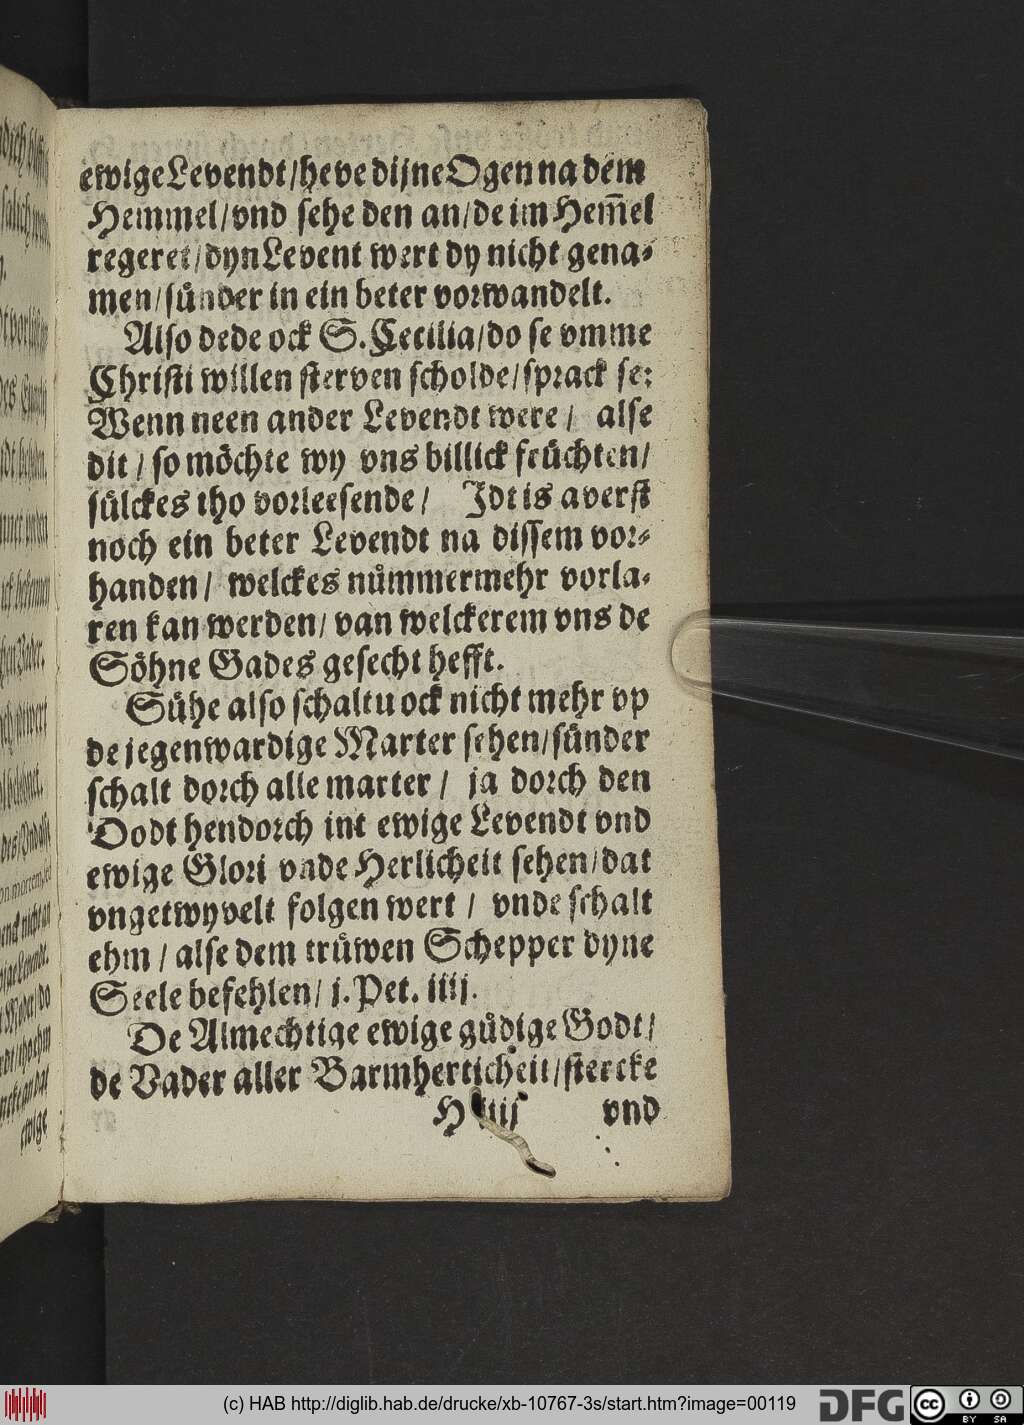 ewige Levendt/ heve dijne Ogen na dem
Hemmel/ vnd sehe den an/ de im Hem̃el
regeret/ dyn Levent wert dy nicht gena⸗
men/ sünder in ein beter vorwandelt.
Also dede ock S. Cecilia/ do se vmme
Christi willen sterven scholde/ sprack se:
Wenn neen ander Levendt were/ alse
dit/ so möchte wy vns billick früchten/
sülckes tho vorleesende/ Idt is averst
noch ein beter Levendt na dissem vor⸗
handen/ welckes nümmermehr vorla⸗
ren kan werden/ van welckerem vns de
Söhne Gades gesecht hefft.
Sühe also schaltu ock nicht mehr vp
de jegenwardige Marter sehen/ sünder
schalt dorch alle marter/ ja dorch den
Dodt hendorch int ewige Levendt vnd
ewige Glori vnde Herlicheit sehen/ dat
vngetwyvelt folgen wert/ vnde schalt
ehm/ alse dem trüwen Schepper dyne
Seele befehlen/ j. Pet. iiij.
De Almechtige ewige güdige Godt/
de Vader aller Barmherticheit/ stercke
vnd
ewige
(c) HAB http://diglib.hab.de/drucke/xb-10767-3s/start.htm?image=00119
DFG
cc
BY SA